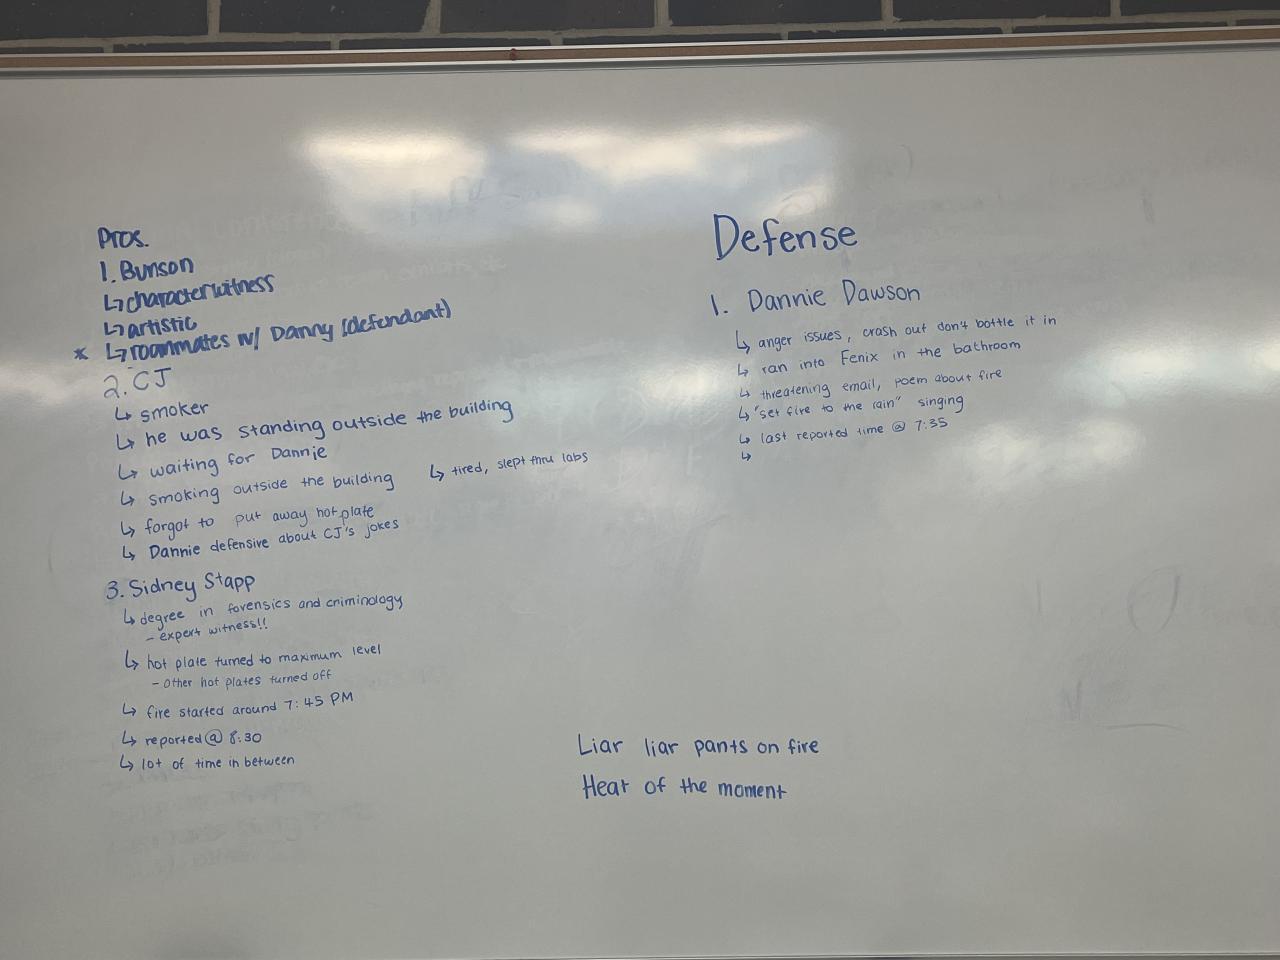 Pros.
1. Bunson
↳ character witness
↳ artistic
* ↳ roommates w/ Danny (defendant)
2. CJ
↳ smoker
↳ he was standing outside the building
↳ waiting for Dannie
↳ smoking outside the building ↳ tired, slept thru labs
↳ forgot to put away hot plate
↳ Dannie defensive about CJ's jokes
3. Sidney Stapp
↳ degree in forensics and criminology
- expert witness!!
↳ hot plate turned to maximum level
- Other hot plates turned off
↳ fire started around 7:45 PM
↳ reported @ 8:30
↳ lot of time in between
Defense
1. Dannie Dawson
↳ anger issues, crash out don't bottle it in
↳ ran into Fenix in the bathroom
↳ threatening email, poem about fire
↳ "set fire to the rain" singing
↳ last reported time @ 7:35
↳
Liar liar pants on fire
Heat of the moment